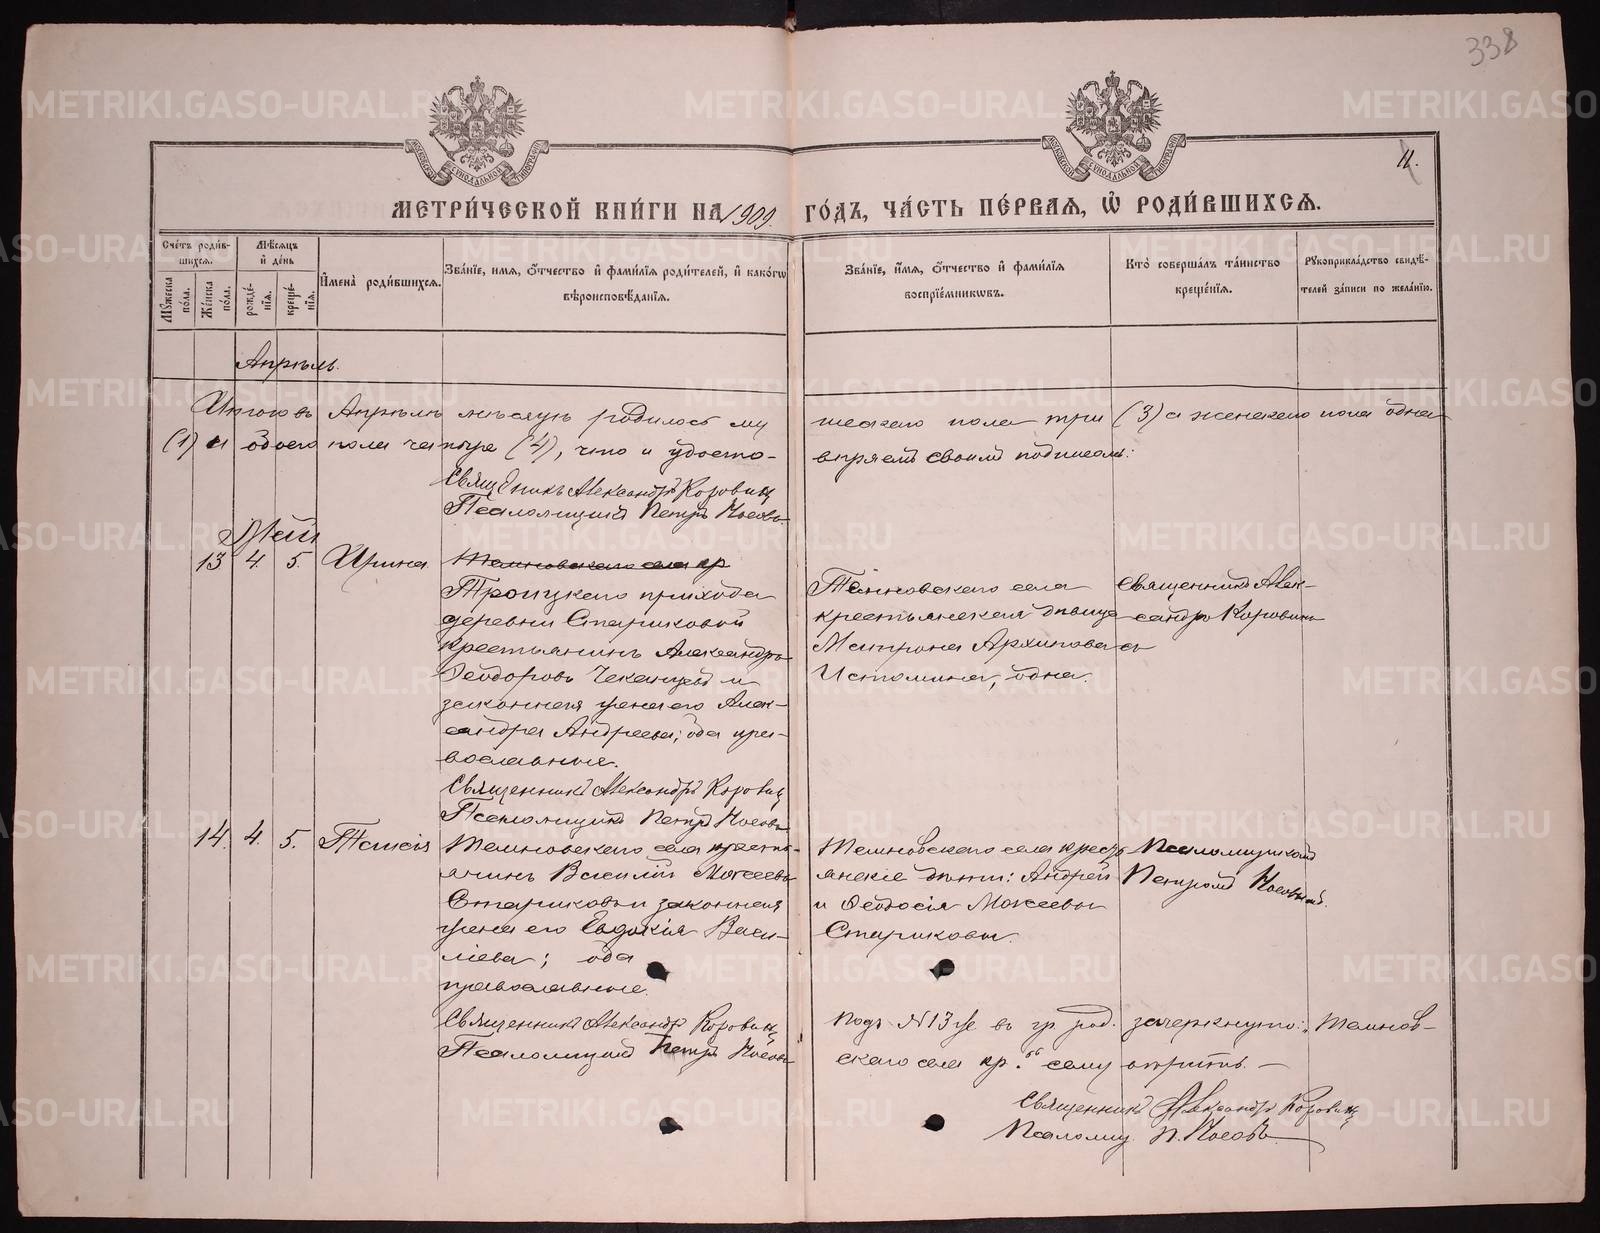 338
11.
МЕТРИ́ЧЕСКОЙ КНИ́ГИ НА 1909. ГО́ДЪ, ЧА́СТЬ ПЕ́РВАЯ, Ѽ РОДИ́ВШИХСЯ.
Счётъ роди́вшихся.
Мѣ́сяцъ и҆ де́нь
Мꙋ́жеска по́ла.
Же́нска по́ла.
рожде́нїѧ.
креще́нїѧ.
И҆мена̀ роди́вшихсѧ.
Зва́нїе, и҆́мѧ, ѻ҆́тчество и҆ фами́лїѧ роди́телей, и҆ како́гѡ вѣроисповѣ́данїѧ.
Зва́нїе, и҆́мѧ, ѻ҆́тчество и҆ фами́лїѧ воспрїе́мникѡвъ.
Кто̀ соверша́лъ та́инство креще́нїѧ.
Рꙋкоприкла́дство свидѣ́телей за́писи по жела́нїю.
Апрѣль.
Итого въ Апрѣлѣ мѣсяцѣ родилось мужескаго пола три (3) а женскаго пола одна
(1) а обоего пола четыре (4), что и удостовѣряемъ своимъ подписомъ:
Священникъ Александръ Коровинъ
Псаломщикъ Петръ Носовъ
Май
13 4. 5. Ирина
Темновскаго села кр
Троицкаго прихода
деревни Стариковой
крестьянинъ Александръ
Ѳеодоровъ Чеканцевъ и
законная жена его Алек-
сандра Андреева; оба пра-
вославные.
Священникъ Александръ Коровинъ
Псаломщикъ Петръ Носовъ
Темновскаго села
крестьянская дѣвица
Матрона Архиповая
Истомина, одна.
Священникъ Алек-
сандръ Коровинъ
14. 4. 5. Таисія
Темновскаго села кресть-
янинъ Василій Моксеевъ
Стариковъ и законная
жена его Евдокія Васи-
ліева; оба
православные.
Священникъ Александръ Коровинъ
Псаломщикъ Петръ Носовъ
Темновскаго села кресть-
янскіе дѣти: Андрей
и Ѳеодосія Моксеевы
Стариковы.
Псаломщикомъ
Петромъ Носовымъ.
Подъ № 13 же въ гр. род. зачеркнуто: „Темнов-
скаго села кр.“ сему вѣрить. —
Священникъ Александръ Коровинъ
Псаломщ. П. Носовъ.
METRIKI.GASO-URAL.RU